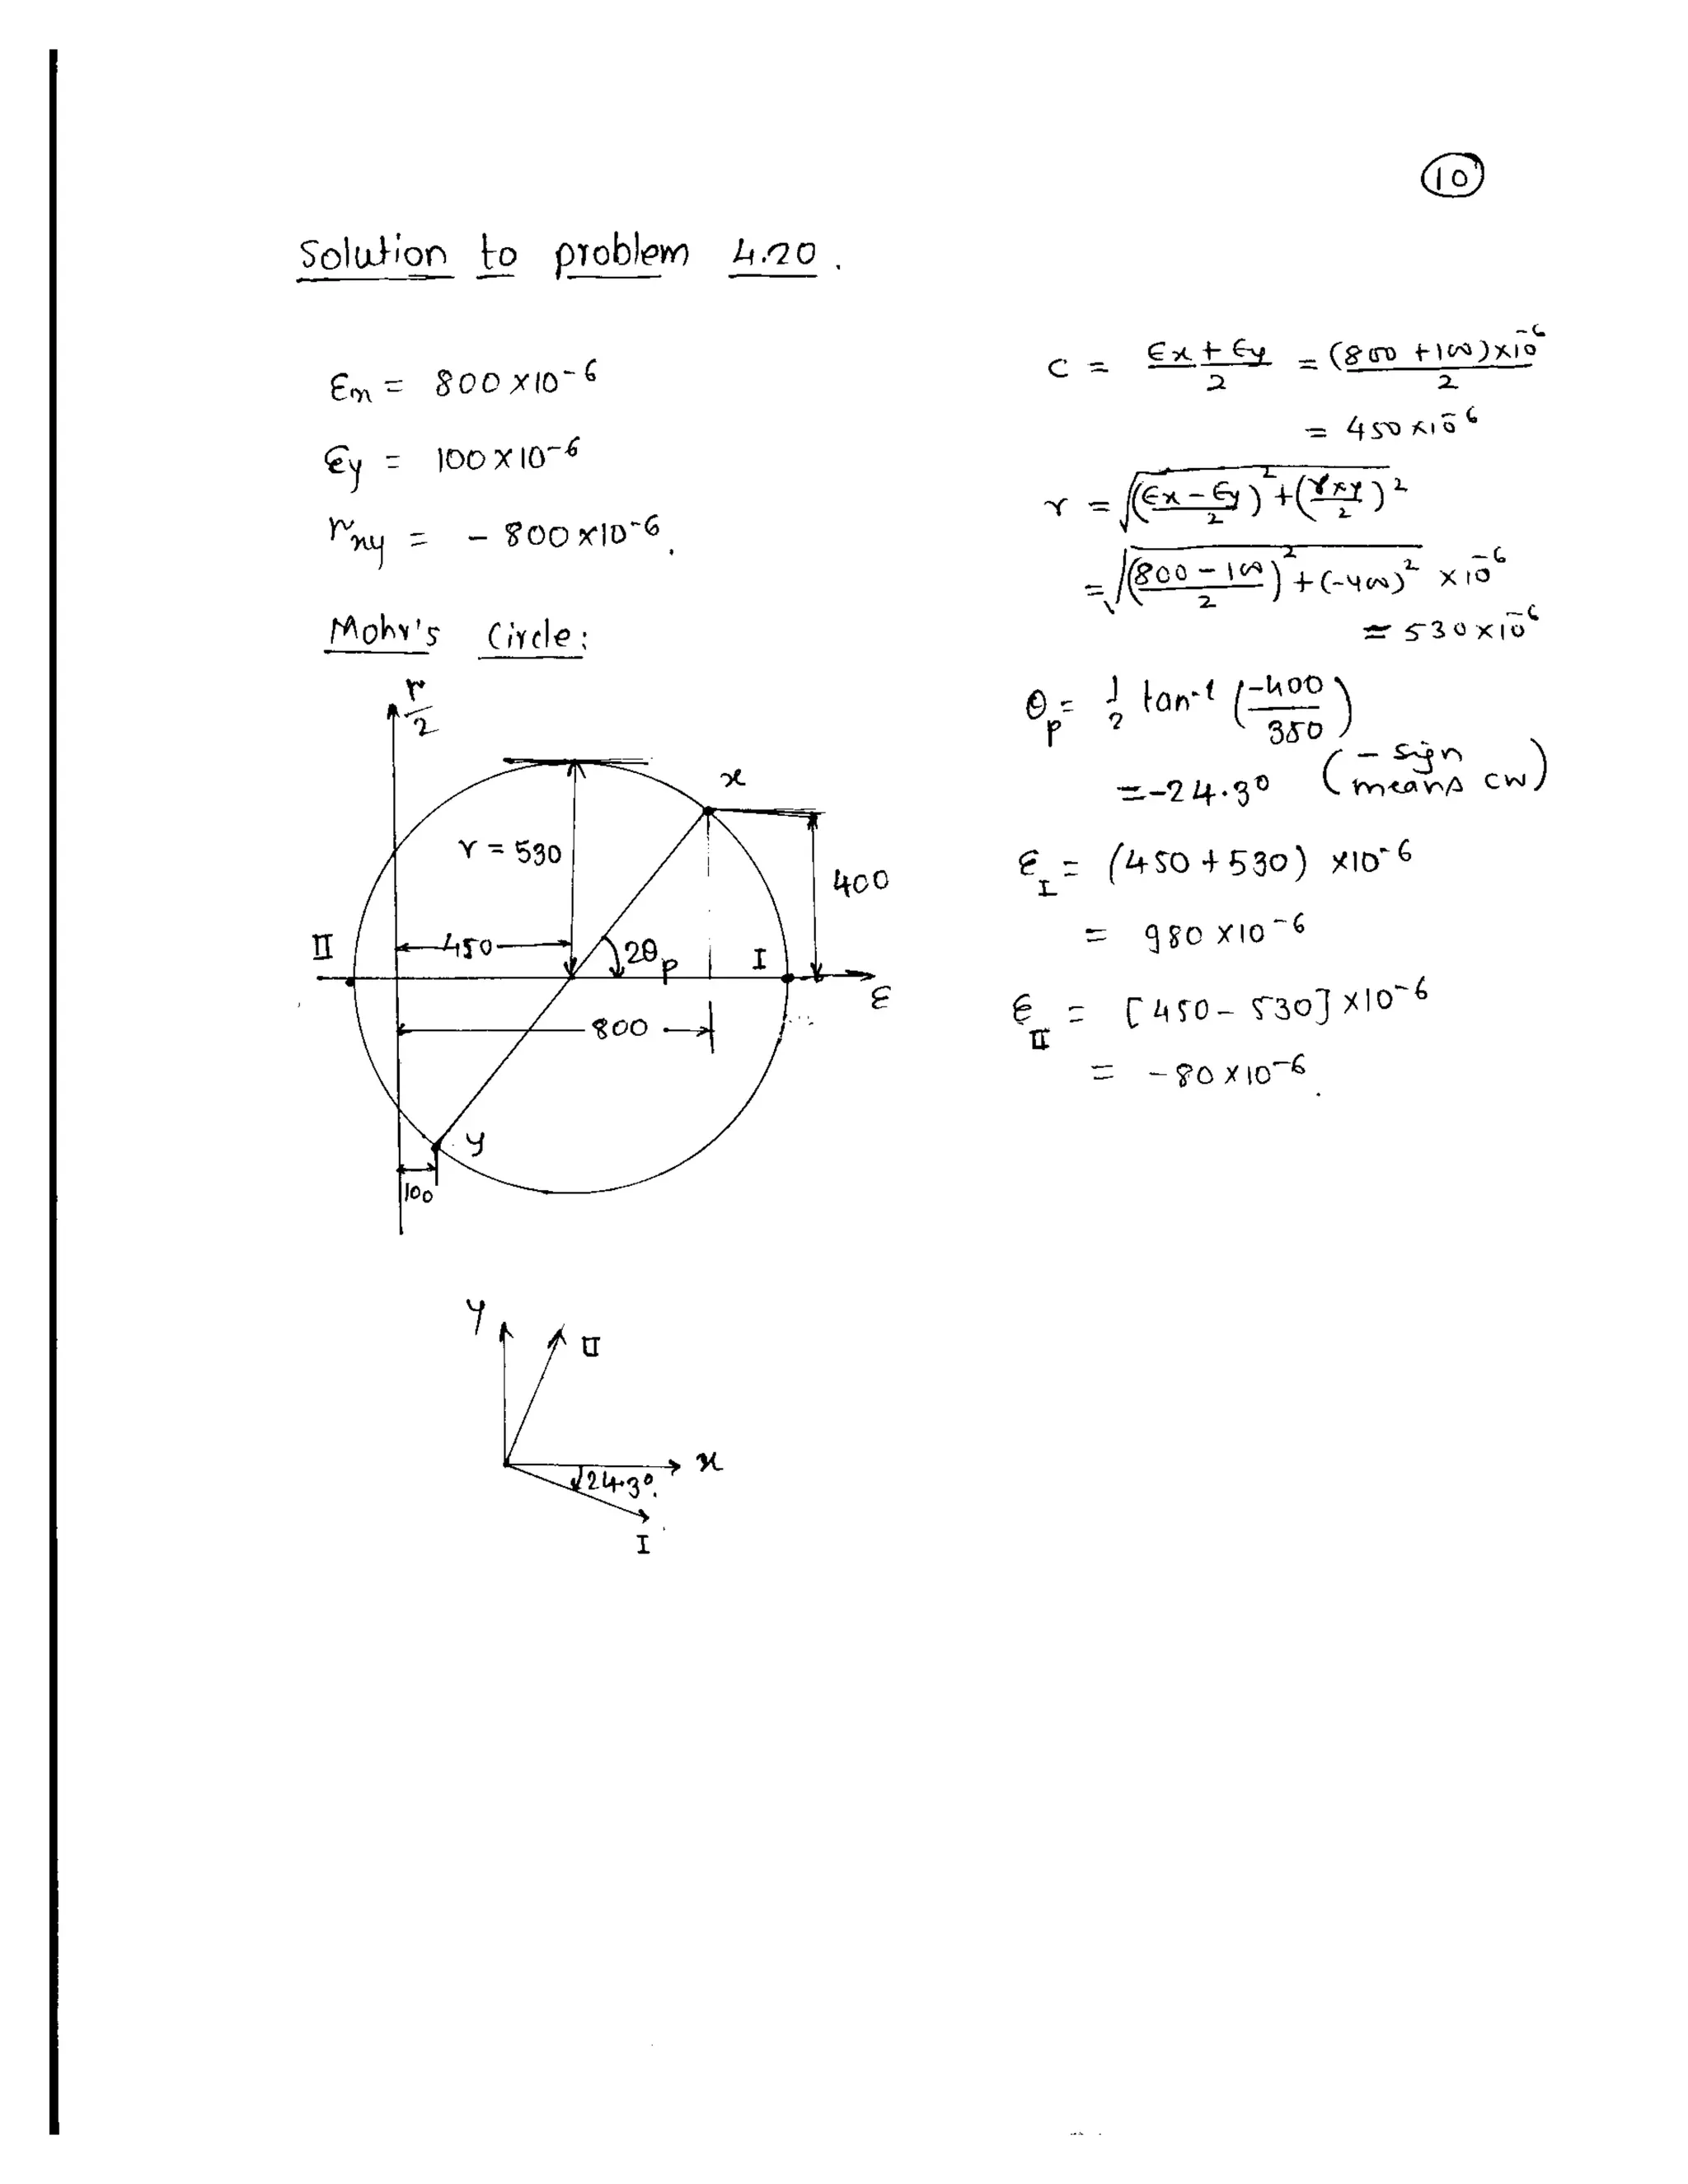 10
Solution to problem 4.20.
εx = 800 × 10-6
εy = 100 × 10-6
rxy = - 800 × 10-6.
Mohr's Circle:
r/2
x
r = 530
400
II
450
2θp
I
ε
800
y
100
y
II
x
24.3°
I
C = (εx + εy)/2 = (800 + 100)×10-6/2
= 450×10-6
r = √((εx - εy)/2)2 + (γxy/2)2
= √((800 - 100)/2)2 + (-400)2 × 10-6
= 530×10-6
θp = 1/2 tan-1 (-400/350)
= -24.3° (- sign means cw)
εI = (450 + 530) ×10-6
= 980 ×10-6
εII = [450 - 530] ×10-6
= -80 ×10-6.